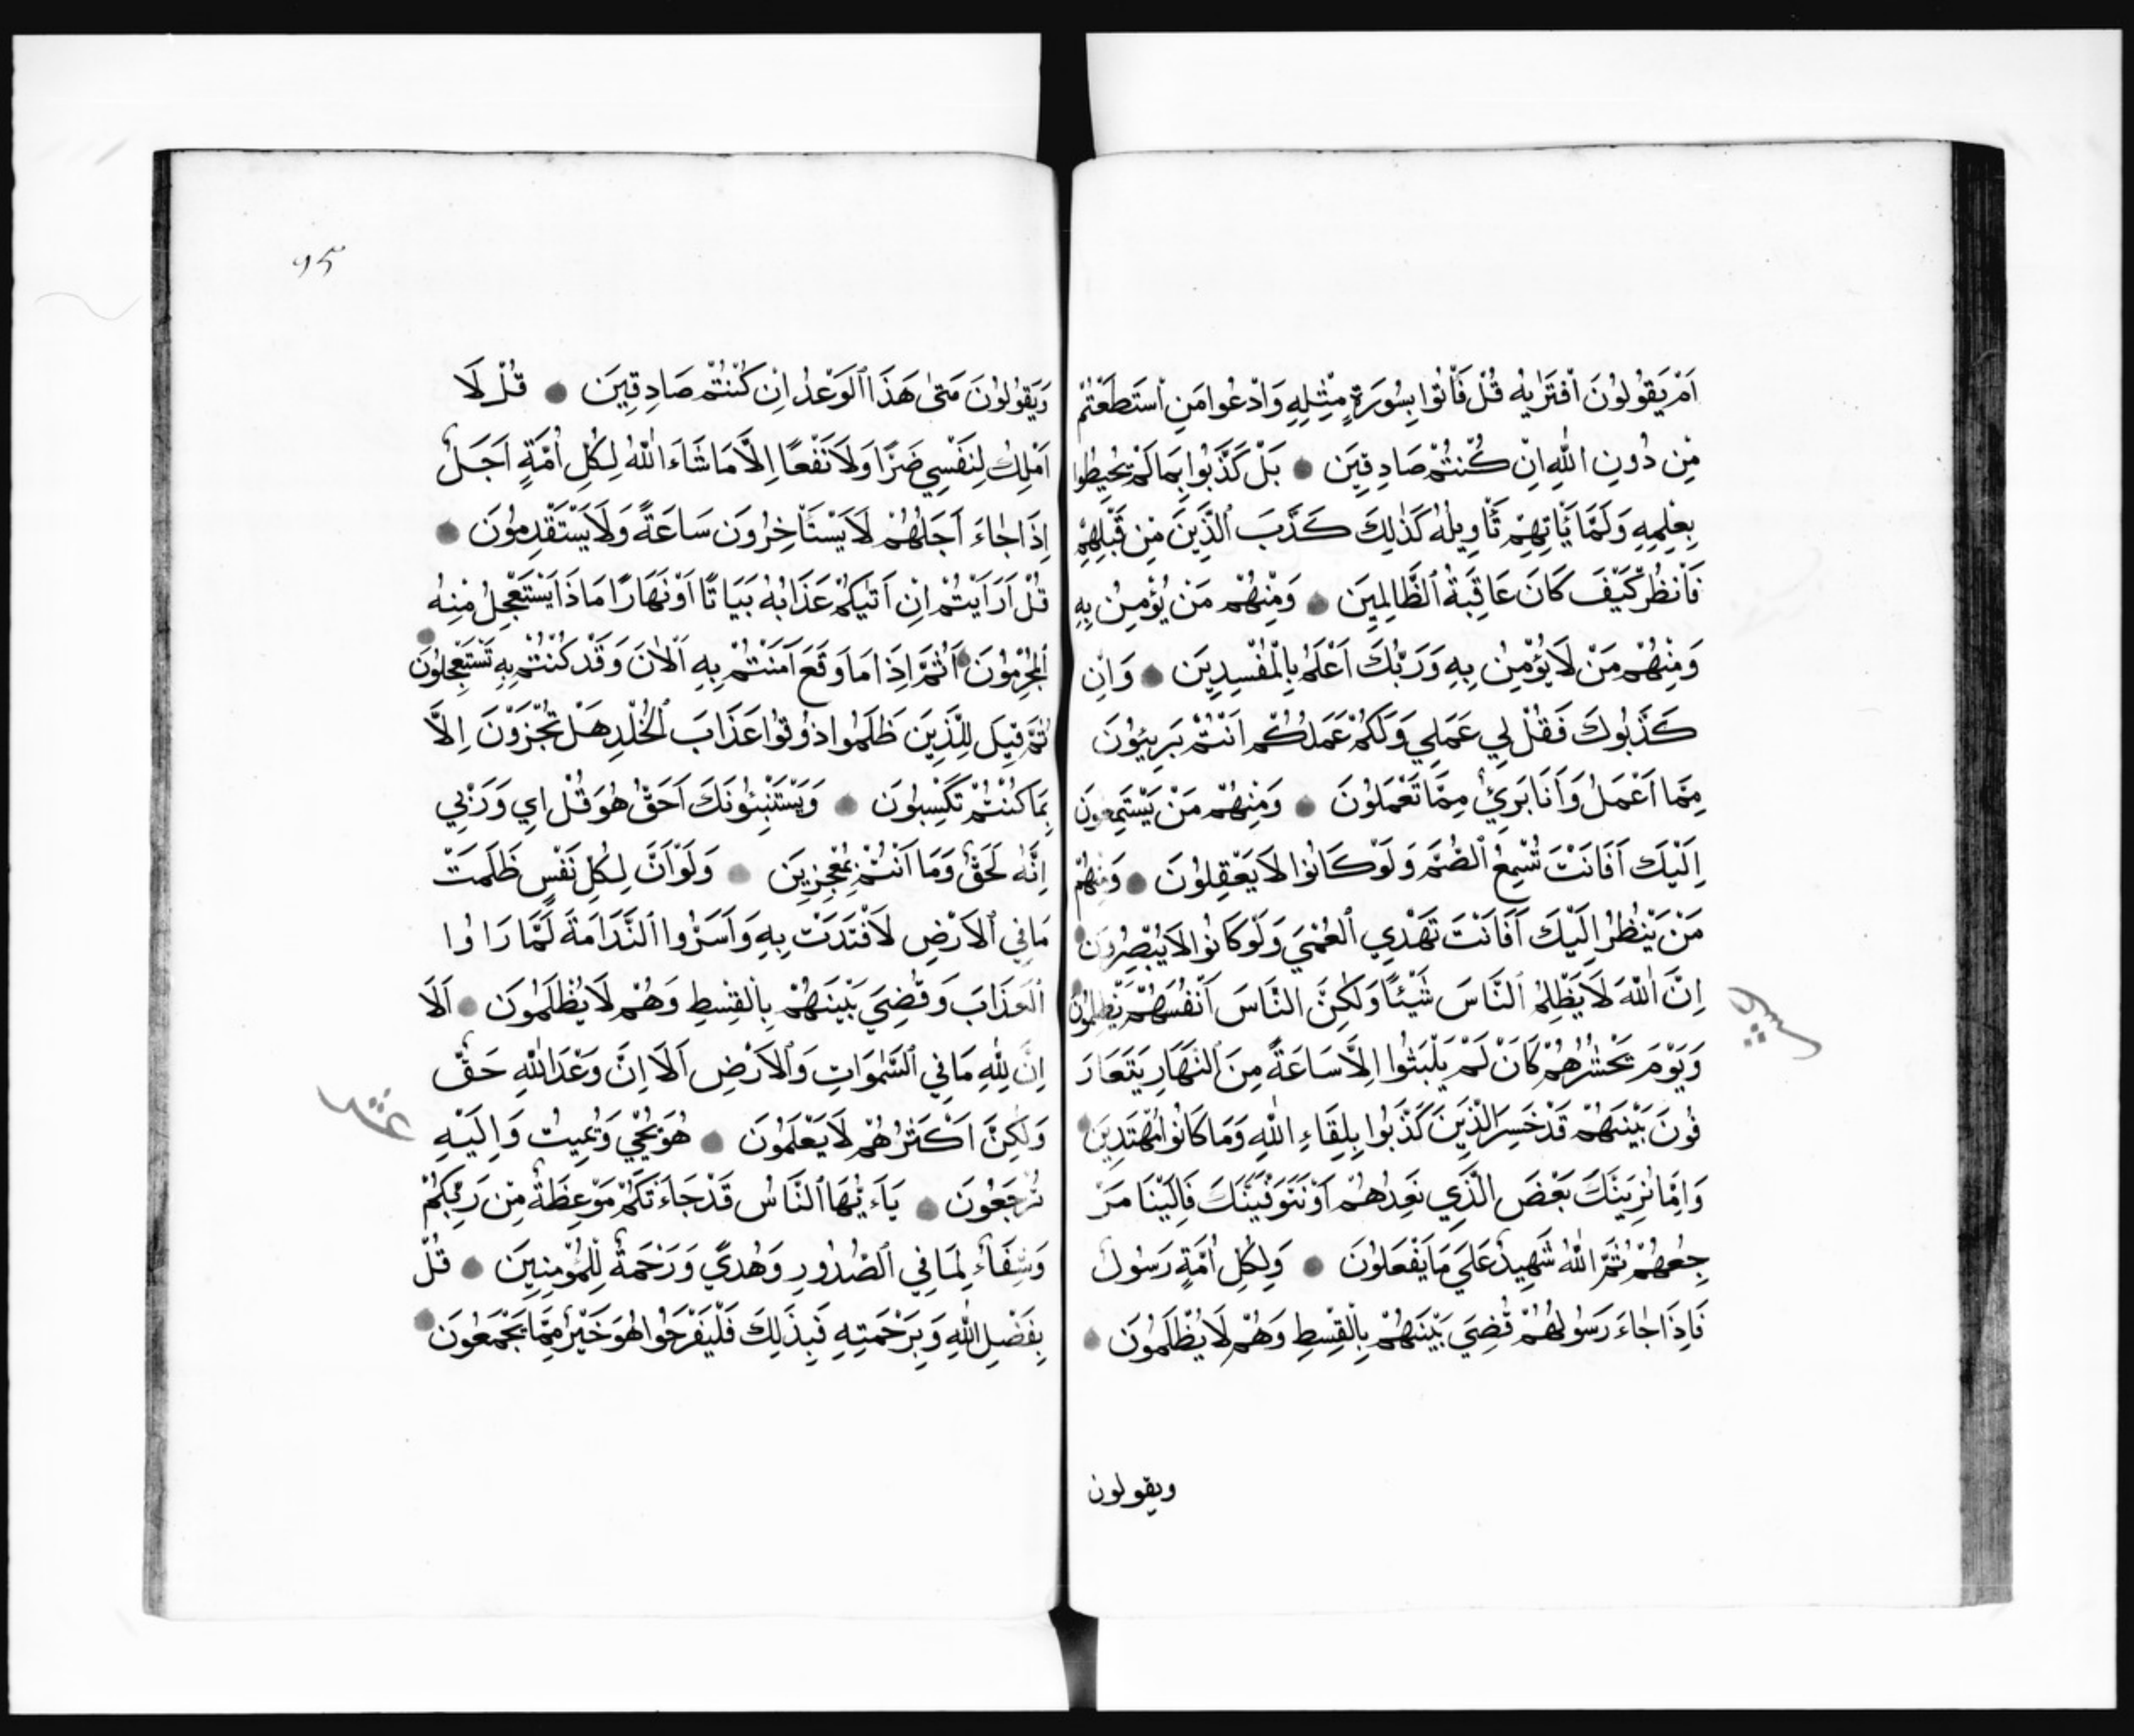 اَمْ يَقُولُونَ افْتَرٰيهُ قُلْ فَأْتُوا بِسُورَةٍ مِثْلِهِ وَادْعُوا مَنِ اسْتَطَعْتُمْ
مِنْ دُونِ اللّٰهِ اِنْ كُنْتُمْ صَادِقِينَ ۞ بَلْ كَذَّبُوا بِمَا لَمْ يُحِيطُوا
بِعِلْمِهِ وَلَمَّا يَأْتِهِمْ تَأْوِيلُهُ كَذٰلِكَ كَذَّبَ الَّذِينَ مِنْ قَبْلِهِمْ
فَانْظُرْ كَيْفَ كَانَ عَاقِبَةُ الظَّالِمِينَ ۞ وَمِنْهُمْ مَنْ يُؤْمِنُ بِهِ
وَمِنْهُمْ مَنْ لَا يُؤْمِنُ بِهِ وَرَبُّكَ اَعْلَمُ بِالْمُفْسِدِينَ ۞ وَاِنْ
كَذَّبُوكَ فَقُلْ لِي عَمَلِي وَلَكُمْ عَمَلُكُمْ اَنْتُمْ بَرِيئُونَ
مِمَّا اَعْمَلُ وَاَنَا بَرِيءٌ مِمَّا تَعْمَلُونَ ۞ وَمِنْهُمْ مَنْ يَسْتَمِعُونَ
اِلَيْكَ اَفَاَنْتَ تُسْمِعُ الصُّمَّ وَلَوْ كَانُوا لَا يَعْقِلُونَ ۞ وَمِنْهُمْ
مَنْ يَنْظُرُ اِلَيْكَ اَفَاَنْتَ تَهْدِي الْعُمْيَ وَلَوْ كَانُوا لَا يُبْصِرُونَ ۞
اِنَّ اللّٰهَ لَا يَظْلِمُ النَّاسَ شَيْئًا وَلٰكِنَّ النَّاسَ اَنْفُسَهُمْ يَظْلِمُونَ ۞
وَيَوْمَ يَحْشُرُهُمْ كَاَنْ لَمْ يَلْبَثُوا اِلَّا سَاعَةً مِنَ النَّهَارِ يَتَعَارَ
فُونَ بَيْنَهُمْ قَدْ خَسِرَ الَّذِينَ كَذَّبُوا بِلِقَاءِ اللّٰهِ وَمَا كَانُوا مُهْتَدِينَ ۞
وَاِمَّا نُرِيَنَّكَ بَعْضَ الَّذِي نَعِدُهُمْ اَوْ نَتَوَفَّيَنَّكَ فَاِلَيْنَا مَرْ
جِعُهُمْ ثُمَّ اللّٰهُ شَهِيدٌ عَلَى مَا يَفْعَلُونَ ۞ وَلِكُلِّ اُمَّةٍ رَسُولٌ
فَاِذَا جَاءَ رَسُولُهُمْ قُضِيَ بَيْنَهُمْ بِالْقِسْطِ وَهُمْ لَا يُظْلَمُونَ ۞
ويقولون
٩٥
وَيَقُولُونَ مَتٰى هَذَا الْوَعْدُ اِنْ كُنْتُمْ صَادِقِينَ ۞ قُلْ لَا
اَمْلِكُ لِنَفْسِي ضَرًّا وَلَا نَفْعًا اِلَّا مَا شَاءَ اللّٰهُ لِكُلِّ اُمَّةٍ اَجَلٌ
اِذَا جَاءَ اَجَلُهُمْ لَا يَسْتَأْخِرُونَ سَاعَةً وَلَا يَسْتَقْدِمُونَ ۞
قُلْ اَرَاَيْتُمْ اِنْ اَتٰيكُمْ عَذَابُهُ بَيَاتًا اَوْ نَهَارًا مَاذَا يَسْتَعْجِلُ مِنْهُ
الْمُجْرِمُونَ ۞ اَثُمَّ اِذَا مَا وَقَعَ اٰمَنْتُمْ بِهِ آلْاٰنَ وَقَدْ كُنْتُمْ بِهِ تَسْتَعْجِلُونَ ۞
ثُمَّ قِيلَ لِلَّذِينَ ظَلَمُوا ذُوقُوا عَذَابَ الْخُلْدِ هَلْ تُجْزَوْنَ اِلَّا
بِمَا كُنْتُمْ تَكْسِبُونَ ۞ وَيَسْتَنْبِئُونَكَ اَحَقٌّ هُوَ قُلْ اِي وَرَبِّي
اِنَّهُ لَحَقٌّ وَمَا اَنْتُمْ بِمُعْجِزِينَ ۞ وَلَوْ اَنَّ لِكُلِّ نَفْسٍ ظَلَمَتْ
مَا فِي الْاَرْضِ لَافْتَدَتْ بِهِ وَاَسَرُّوا النَّدَامَةَ لَمَّا رَاَوُا
الْعَذَابَ وَقُضِيَ بَيْنَهُمْ بِالْقِسْطِ وَهُمْ لَا يُظْلَمُونَ ۞ اَلَا
اِنَّ لِلّٰهِ مَا فِي السَّمٰوَاتِ وَالْاَرْضِ اَلَا اِنَّ وَعْدَ اللّٰهِ حَقٌّ
وَلٰكِنَّ اَكْثَرُهُمْ لَا يَعْلَمُونَ ۞ هُوَ يُحْيِي وَيُمِيتُ وَاِلَيْهِ
تُرْجَعُونَ ۞ يَاءَيُّهَا النَّاسُ قَدْ جَاءَتْكُمْ مَوْعِظَةٌ مِنْ رَبِّكُمْ
وَشِفَاءٌ لِمَا فِي الصُّدُورِ وَهُدًى وَرَحْمَةٌ لِلْمُؤْمِنِينَ ۞ قُلْ
بِفَضْلِ اللّٰهِ وَبِرَحْمَتِهِ فَبِذَلِكَ فَلْيَفْرَحُوا هُوَ خَيْرٌ مِمَّا يَجْمَعُونَ ۞
عشر